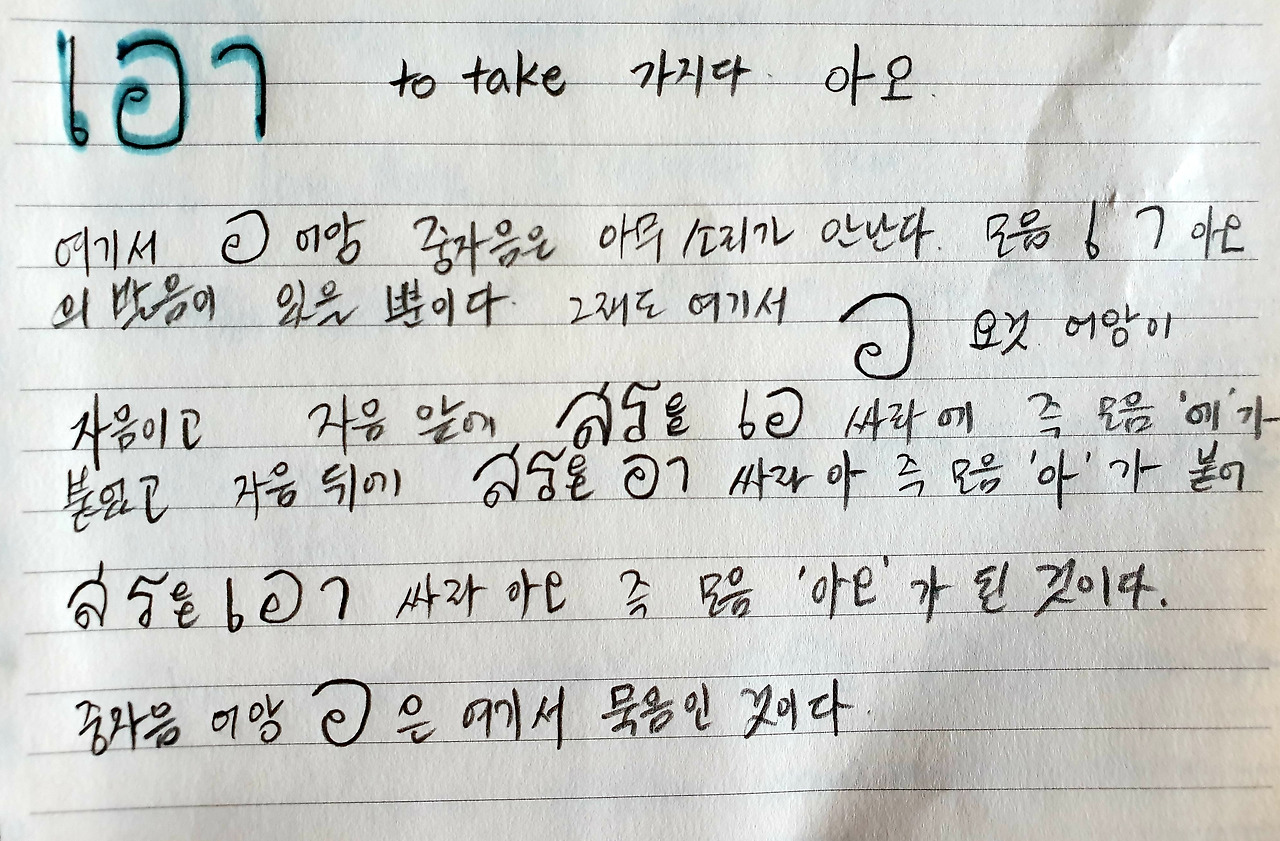 เอา to take 가지다. 아오.
여기서 อ 어앙 중자음은 아무 소리가 안난다. 모음 เ า 아오
의 발음이 있을 뿐이다. 그래도 여기서 อ 요것 어앙이
자음이고 자음 앞에 สระ เอ 싸라 에 즉 모음 '에'가
붙었고 자음 뒤에 สระ อา 싸라 아 즉 모음 '아'가 붙어
สระ เอา 싸라 아오 즉 모음 '아오'가 된 것이다.
중자음 어앙 อ 은 여기서 묵음인 것이다.